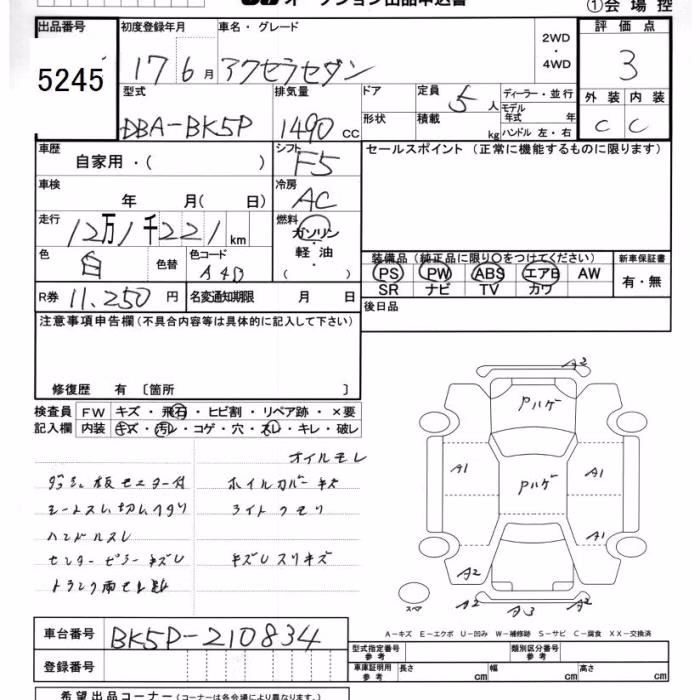 オークション出品申込書
①会場控
出品番号 初度登録年月 車名・グレード 2WD・4WD 評価点
5245 17 6月 アクセラセダン 3
型式 排気量 ドア 定員 5人 ディーラー・並行 外装 内装
DBA-BK5P 1490cc 形状 積載 kg モデル年式 年 C C
ハンドル 左・右
車歴 自家用・( ) シフト F5 セールスポイント(正常に機能するものに限ります)
車検 年 月( 日) 冷房 AC
走行 12万1千221km 燃料 ガソリン・軽油・( )
色 白 色替 色コード A4D
装備品(純正品に限り〇をつけてください) 新車保証書
PS PW ABS エアB AW 有・無
SR ナビ TV カワ
R券 11,250円 名変通知期限 月 日 後日品
注意事項申告欄(不具合内容等は具体的に記入して下さい)
修復歴 有 〔箇所 〕
検査員記入欄 FW キズ・飛石・ヒビ割・リペア跡・×要
内装 キズ・汚レ・コゲ・穴・スレ・キレ・破レ
オイルモレ
ホイルカバーキズ
ライトクモリ
ハンドルスレ
センターピラーキズ
A3
Pハゲ
A1 Pハゲ A1
A1
A2 A2
A2 A3
スペア
A-キズ E-エクボ U-凹み W-補修跡 S-サビ C-腐食 XX-交換済
車台番号 BK5P-210834
登録番号
型式指定番号 参考 類別区分番号 参考
車庫証明用 参考 長さ cm 幅 cm 高さ cm
希望出品コーナー(コーナーは各会場により異なります)